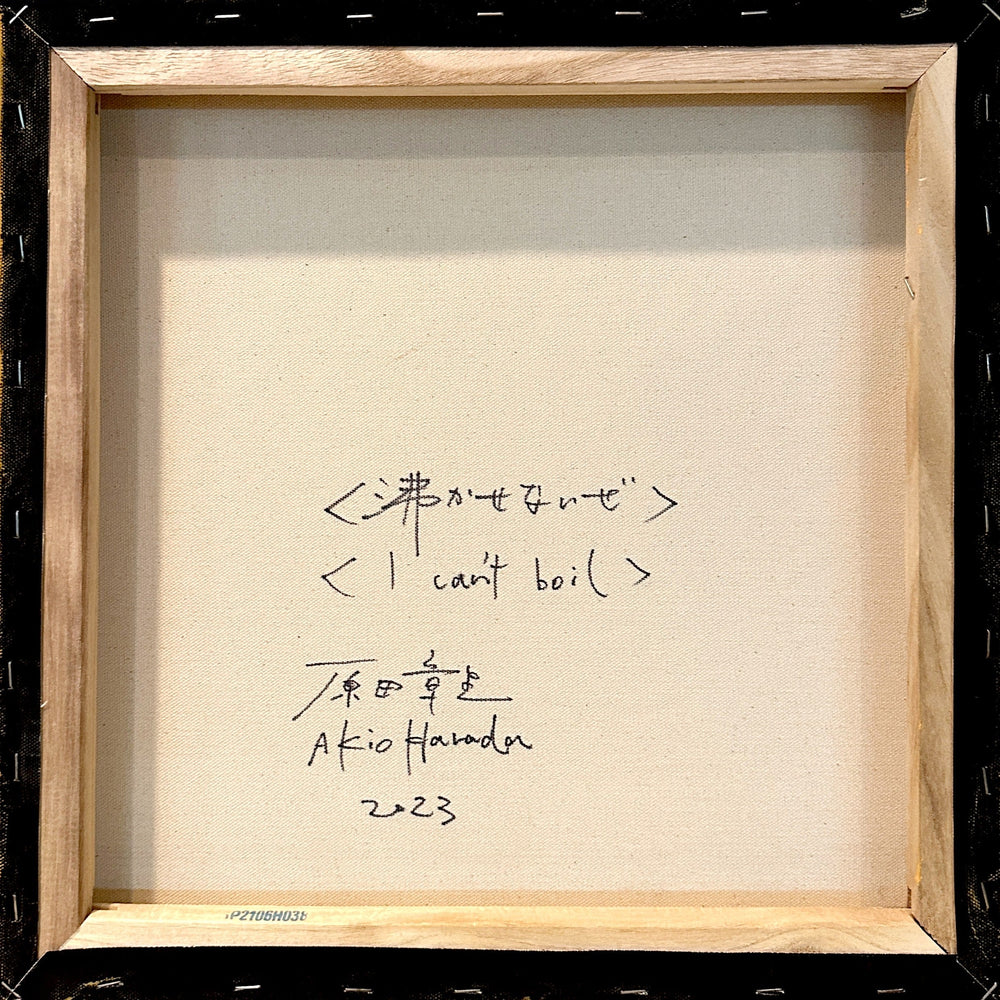 <沸かせないぜ>
<I can't boil>
原田章生
Akio Harada
2023
P2106H038